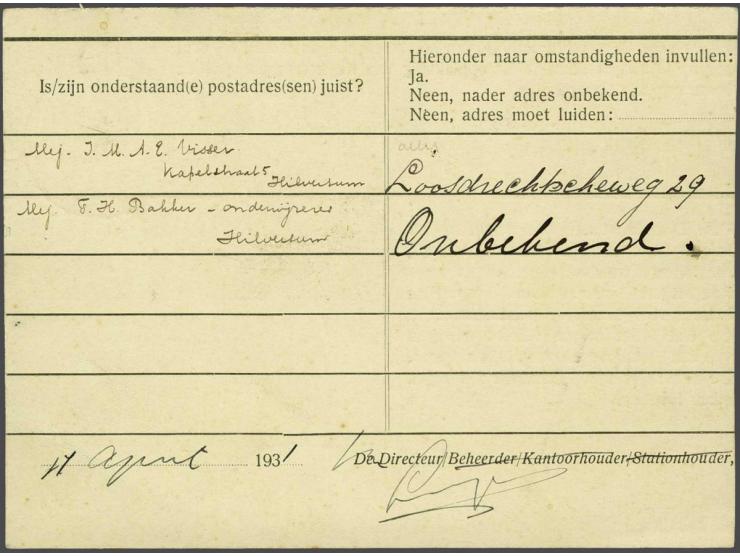 Is/zijn onderstaand(e) postadres(sen) juist?
Hieronder naar omstandigheden invullen:
Ja.
Neen, nader adres onbekend.
Neen, adres moet luiden:
Mej. J. M. A. E. Visser
Kapelstraat 5
Hilversum
Loosdrechtscheweg 29
Mej. F. H. Bakker - onderwijzeres
Hilversum
Onbekend.
April 1931
De Directeur/Beheerder/Kantoorhouder/Stationhouder,